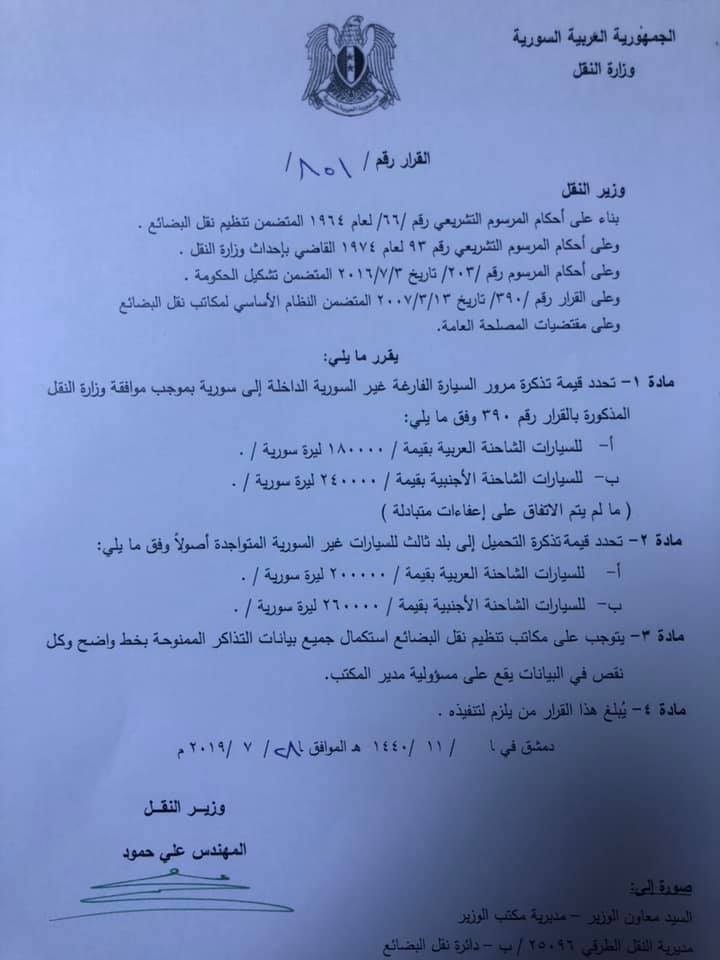 الجمهورية العربية السورية
وزارة النقل
القرار رقم / ٨٥١ /
وزير النقل
بناء على أحكام المرسوم التشريعي رقم /٦٦/ لعام ١٩٦٤ المتضمن تنظيم نقل البضائع .
وعلى أحكام المرسوم التشريعي رقم ٩٣ لعام ١٩٧٤ القاضي بإحداث وزارة النقل .
وعلى أحكام المرسوم رقم /٢٠٣/ تاريخ ٢٠١٦/٧/٣ المتضمن تشكيل الحكومة .
وعلى القرار رقم /٣٩٠/ تاريخ ٢٠٠٧/٣/١٣ المتضمن النظام الأساسي لمكاتب نقل البضائع
وعلى مقتضيات المصلحة العامة.
يقرر ما يلي:
مادة ١- تحدد قيمة تذكرة مرور السيارة الفارغة غير السورية الداخلة إلى سورية بموجب موافقة وزارة النقل
المذكورة بالقرار رقم ٣٩٠ وفق ما يلي:
أ- للسيارات الشاحنة العربية بقيمة / ١٨٠٠٠٠ ليرة سورية / .
ب- للسيارات الشاحنة الأجنبية بقيمة / ٢٤٠٠٠٠ ليرة سورية / .
( ما لم يتم الاتفاق على إعفاءات متبادلة )
مادة ٢- تحدد قيمة تذكرة التحميل إلى بلد ثالث للسيارات غير السورية المتواجدة أصولاً وفق ما يلي:
أ- للسيارات الشاحنة العربية بقيمة / ٢٠٠٠٠٠ ليرة سورية / .
ب- للسيارات الشاحنة الأجنبية بقيمة / ٢٦٠٠٠٠ ليرة سورية / .
مادة ٣- يتوجب على مكاتب تنظيم نقل البضائع استكمال جميع بيانات التذاكر الممنوحة بخط واضح وكل
نقص في البيانات يقع على مسؤولية مدير المكتب.
مادة ٤- يُبلغ هذا القرار من يلزم لتنفيذه .
دمشق في / / ١١/ ١٤٤٠ هـ الموافق ٢٨/ ٧ /٢٠١٩ م
وزيـر النقـل
المهندس علي حمود
صورة إلى:
السيد معاون الوزير – مديرية مكتب الوزير
مديرية النقل الطرقي ٢٥٠٩٦ / ب – دائرة نقل البضائع